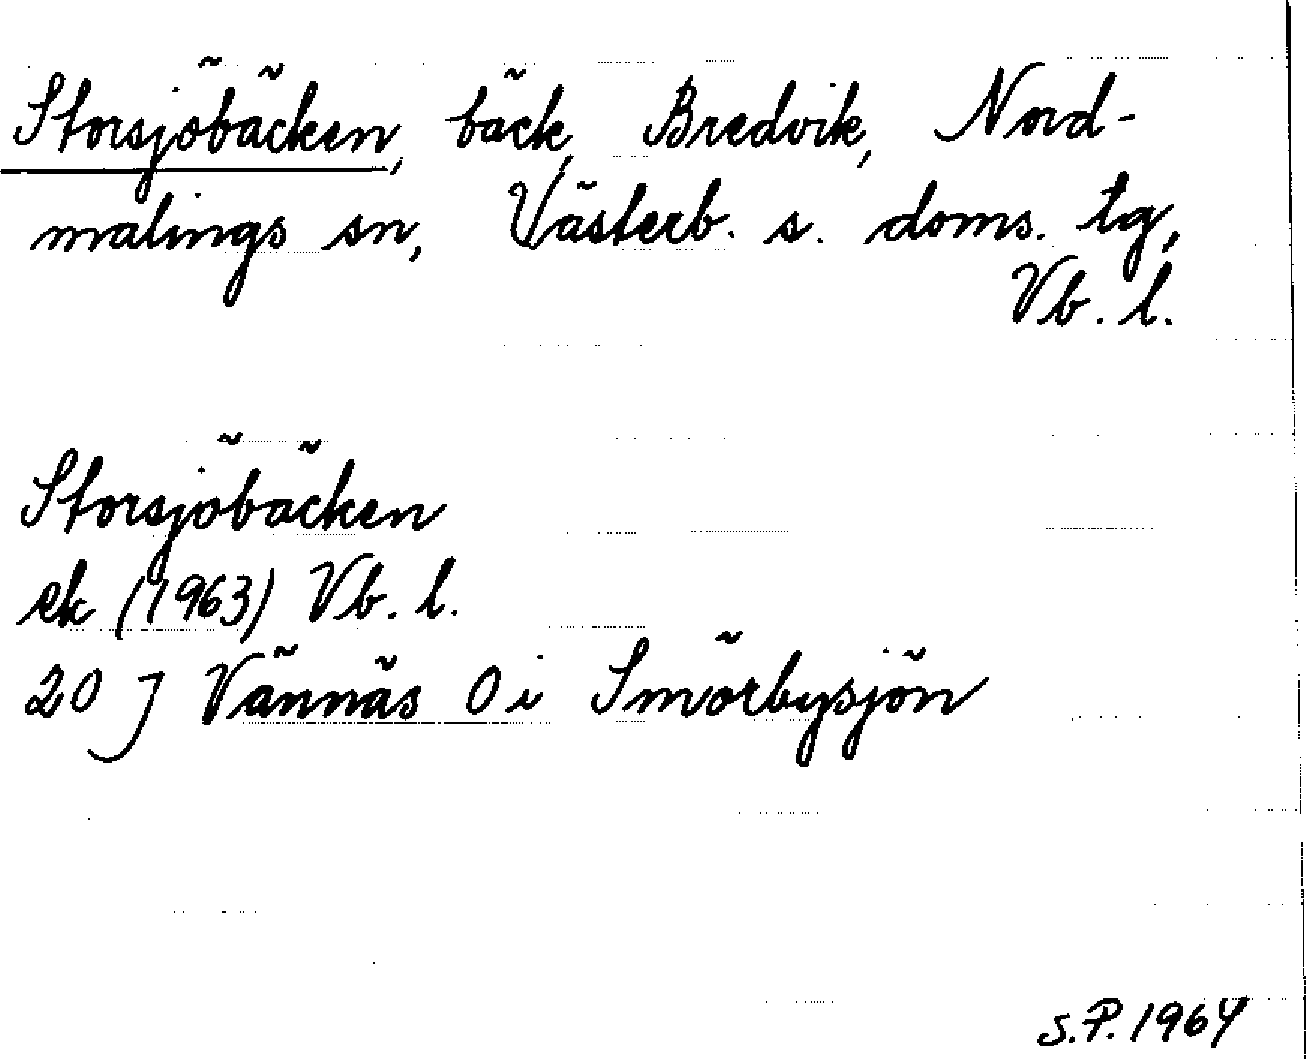 Storsjöbäcken, bäck, Bredvik, Nord-
malings sn, Västerb. s. doms. tg,
Vb. l.
Storsjöbäcken
ek (1963) Vb. l.
20 J Vännäs O i Smörbysjön
S.P. 1964